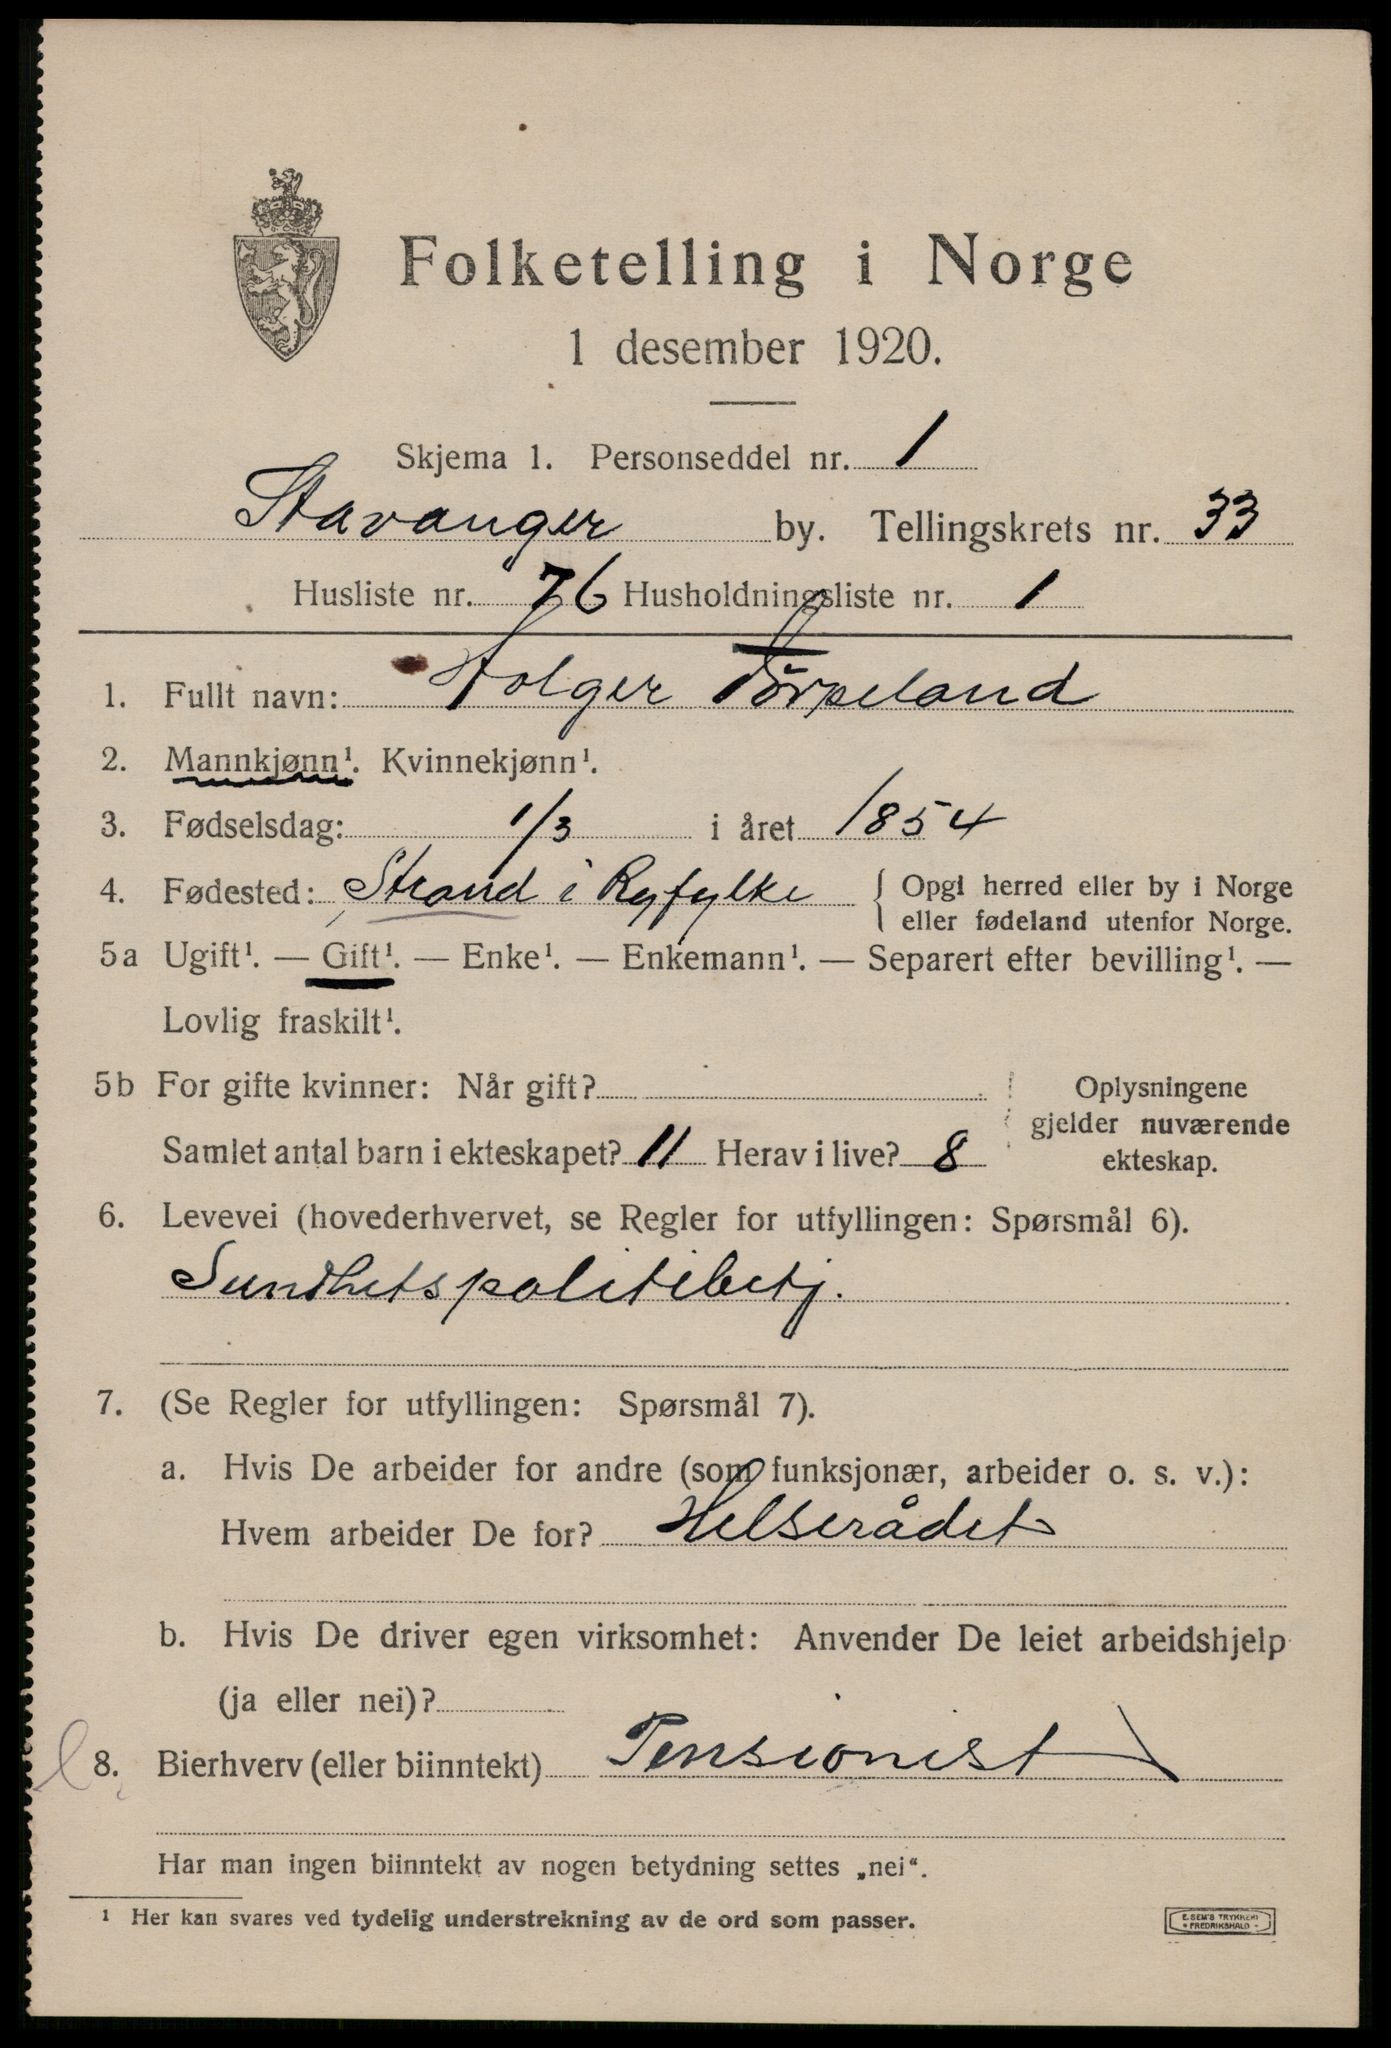 Folketelling i Norge
1 desember 1920.
Skjema 1. Personseddel nr. 1
Stavanger by. Tellingskrets nr. 33
Husliste nr. 76 Husholdningsliste nr. 1
1. Fullt navn: Holger Törpeland
2. Mannkjønn¹. Kvinnekjønn¹.
3. Fødselsdag: 1/3 i året 1854
4. Fødested: Strand i Ryfylke { Opgi herred eller by i Norge
eller fødeland utenfor Norge.
5a Ugift¹. — Gift¹. — Enke¹. — Enkemann¹. — Separert efter bevilling¹. —
Lovlig fraskilt¹.
5b For gifte kvinner: Når gift?
Oplysningene
gjelder nuværende
ekteskap.
Samlet antal barn i ekteskapet? 11 Herav i live? 8
6. Levevei (hovederhvervet, se Regler for utfyllingen: Spørsmål 6).
Sundhetspolitibetj.
7. (Se Regler for utfyllingen: Spørsmål 7).
a. Hvis De arbeider for andre (som funksjonær, arbeider o. s. v.):
Hvem arbeider De for? Helserådet
b. Hvis De driver egen virksomhet: Anvender De leiet arbeidshjelp
(ja eller nei)?
8. Bierhverv (eller biinntekt) Pensionist
Har man ingen biinntekt av nogen betydning settes „nei“.
¹ Her kan svares ved tydelig understrekning av de ord som passer.
E. SEM'S TRYKKERI
• FREDRIKSHALD •